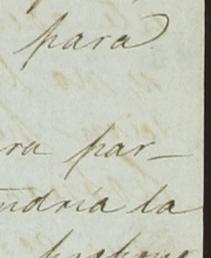 para
ra par-
ndria la